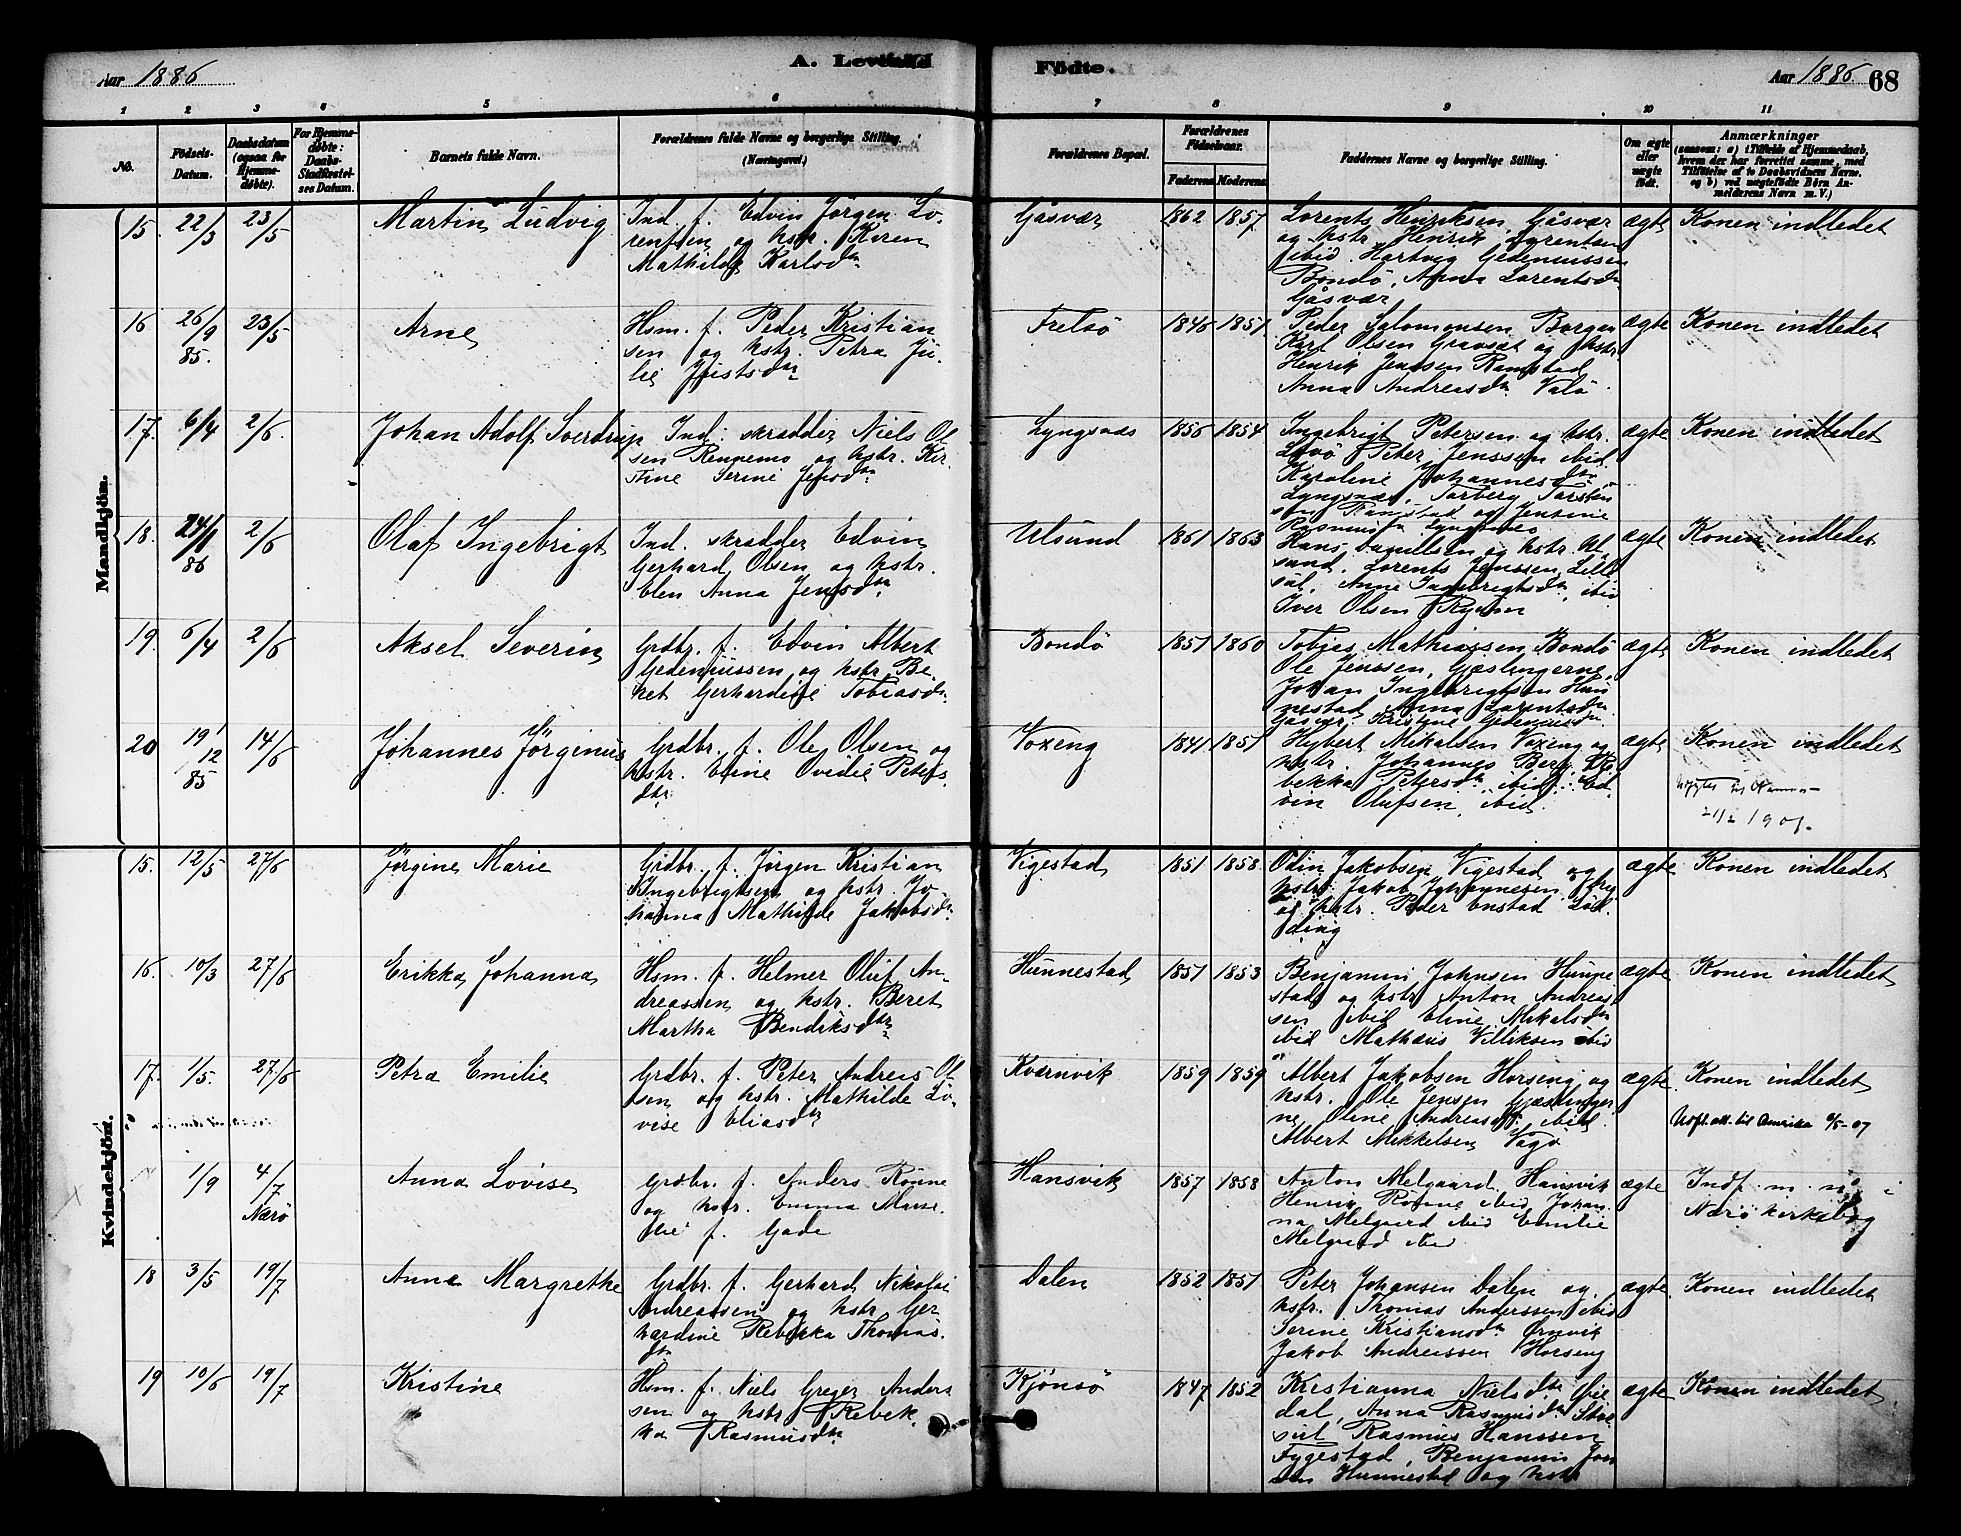 Aar 1886
A. Levende
Födte.
Aar 1886
68
1 2 3 4 5 6 7 8 9 10 11
No.
Födsels-Datum.
Daabsdatum (ogsaa for Hjemme-döbte).
For Hjemme-döbte: Daabs-Stadfæstel-ses Datum.
Barnets fulde Navn.
Forældrenes fulde Navne og borgerlige Stilling. (Næringsvei.)
Forældrenes Bopæl.
Forældrenes Födselsaar.
Faderens Moderens
Faddernes Navne og borgerlige Stilling.
Om ægte eller uægte födt.
Anmærkninger
(saasom: a) i Tilfælde af Hjemmedaab,
hvem der har forrettet samme, med
Tilföielse af to Daabsvidners Navne,
og b) ved uægtefödte Börn An-
melderens Navn m. V.)
Mandkjön.
15. 22/3 23/5 Martin Ludvig
Ind. f. Edvin Jørgen Lo-
rentsen og hstr. Karen
Mathilde Karlsdtr
Gåsvær 1862 1857
Lorents Henriksen, Gåsvær
og hstr. Henrik Lorentsen
ibid. Hartvig Gedeniussen
Bondö, Anna Lorentsdtr
Gåsvær
ægte Konen indledet
16 26/9 85. 23/5 Arne
Hsm. f. Peder Kristian
sen og hstr. Petra Ju-
lie Justsdtr
1846 1851
Peder Salomonsen Borgan
Karl Olsen Gravsæt og hstr
Henrik Jenssen Ramstad
Anna Andreasdtr Valö
ægte Konen indledet
17. 6/4 2/6. Johan Adolf Sverdrup
Ind. skrædder Niels Ol
sen Rennemo og hstr. Kir-
stine Serine Jensdtr
Lyngsnæs 1856 1854
Ingebrigt Petersen og hstr.
Peter Jenssen ibid.
Karoline Johannesdtr
Lyngsnæs, Torberg Torsten
sen Ramstad og Jensine
Rasmusdtr Lyngsnæs
ægte Konen indledet
18. 24/1 86 2/6 Olaf Ingebrigt
Ind. skrædder Edvin
Gerhard Olsen og hstr.
Elen Anna Jensdtr
Ulsund 1861 1863
Hans og hstr. Ul
sund, Lorents Jenssen Lille
sal, Anne Ingebrigtsdtr ibid
Iver Olsen
ægte Konen indledet
19. 6/4 2/6 Aksel Severin
Grdbr. f. Edvin Albert
Gedeniussen og hstr. Be-
ret Gerhardine Tobiasdtr
Bondö 1851 1860
Tobias Mathiassen Bondö
Ole Jenssen, Gjæslingerne,
Johan Ingebrigtsen Hun
nestad, Anna Lorentsdtr
Gåsvær, Kristine Gedeniusdtr
ægte Konen indledet
20 19/12 85 14/6 Johannes Jörginus
Grdbr. f. Ole Olsen og
hstr. Eline Ovidie Peters
dtr.
Voxeng 1841 1851
Hybert Mikalsen Voxeng og
hstr. Johannes Berg Re
bekka Petersdtr ibid. Ed-
vin Olufsen, ibid.
ægte Konen indledet
21/2 1901.
Kvindekjön.
15. 12/5 27/6 Jörgine Marie
Grdbr. f. Jörgen Kristian
Ingebrigtsen og hstr. Jo-
hanna Mathilde Jakobsdtr
Vigestad 1851 1858
Odin Jakobsen Vigestad og
hstr. Jakob Johannesen
og hstr. Peder Enstad Löd
ding
ægte Konen indledet
16. 10/3 27/6 Erikka Johanna
Hsm. f. Helmer Oluf An-
dreassen og hstr. Beret
Martha Bendiksdtr
Hunnestad 1851 1853
Benjamin Johnsen Hunne
stad og hstr Anton Andreas
sen ibid Eline Mikalsdtr
ibid Mathæus Villiksen ibid
ægte Konen indledet
17. 1/5. 27/6 Petra Emilie
Grdbr. f. Peter Andreas Ol
sen og hstr. Mathilde Lo-
vise Eliasdtr
Kværnvik 1859 1859
Albert Jakobsen Horseng og
hstr. Ole Jensen Gjæslinger
ne, Oline Andreasdtr ibid.
Albert Mikkelsen Vågö
ægte Konen indledet
Utfl. att. til Amerika 6/5-07
1/9 4/7 Nærö Anna Lovise
Grdbr. f. Anders Rönne
og hstr. Emma Marie
f. Gade
Hansvik 1857 1858
Anton Melgaard Hansvik
Henrik Rönne ibid Johan-
na Melgaard ibid Emilie
Melgaard ibid
ægte Indf. m. no i
Nærö kirkebog
18 3/5 19/7 Anna Margrethe
Grdbr. f. Gerhard Nikolai
Andreassen og hstr Ger
hardine Rebekka Thomas-
dtr
Dalen 1852 1851
Peter Johansen Dalen og
hstr. Thomas Anderssen ibid
Serine Kristiansdtr Örnvik
Jakob Andreassen Horseng
ægte. Konen indledet
19 10/6 19/7 Kristine
Hsm. f. Niels Greger Anders
sen og hstr Rebek-
ka Rasmusdtr
Kjönsö 1847 1852
Kristianna Nielsdtr
dal, Anna Rasmusdtr
Rasmus Hanssen
Fygestad, Benjamin John
sen Hunnestad og hstr
ægte Konen indledet